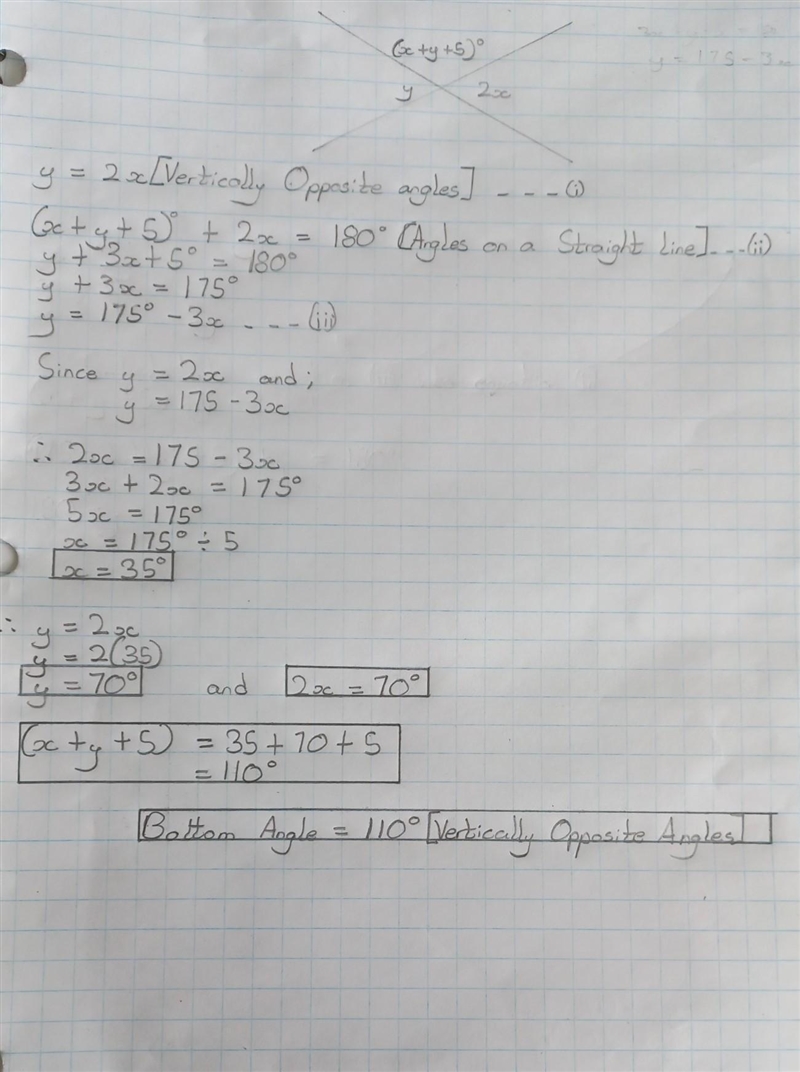 (x+y+5)°
y 2x
y = 175 - 3x
y = 2x [Vertically Opposite angles] - - - (i)
(x + y + 5)° + 2x = 180° [Angles on a Straight Line] - - - (ii)
y + 3x + 5° = 180°
y + 3x = 175°
y = 175° - 3x - - - - (iii)
Since y = 2x and ;
y = 175 - 3x
∴ 2x = 175 - 3x
3x + 2x = 175°
5x = 175°
x = 175° ÷ 5
x = 35°
∴ y = 2x
y = 2(35)
y = 70° and 2x = 70°
(x + y + 5) = 35 + 70 + 5
= 110°
Bottom Angle = 110° [Vertically Opposite Angles]